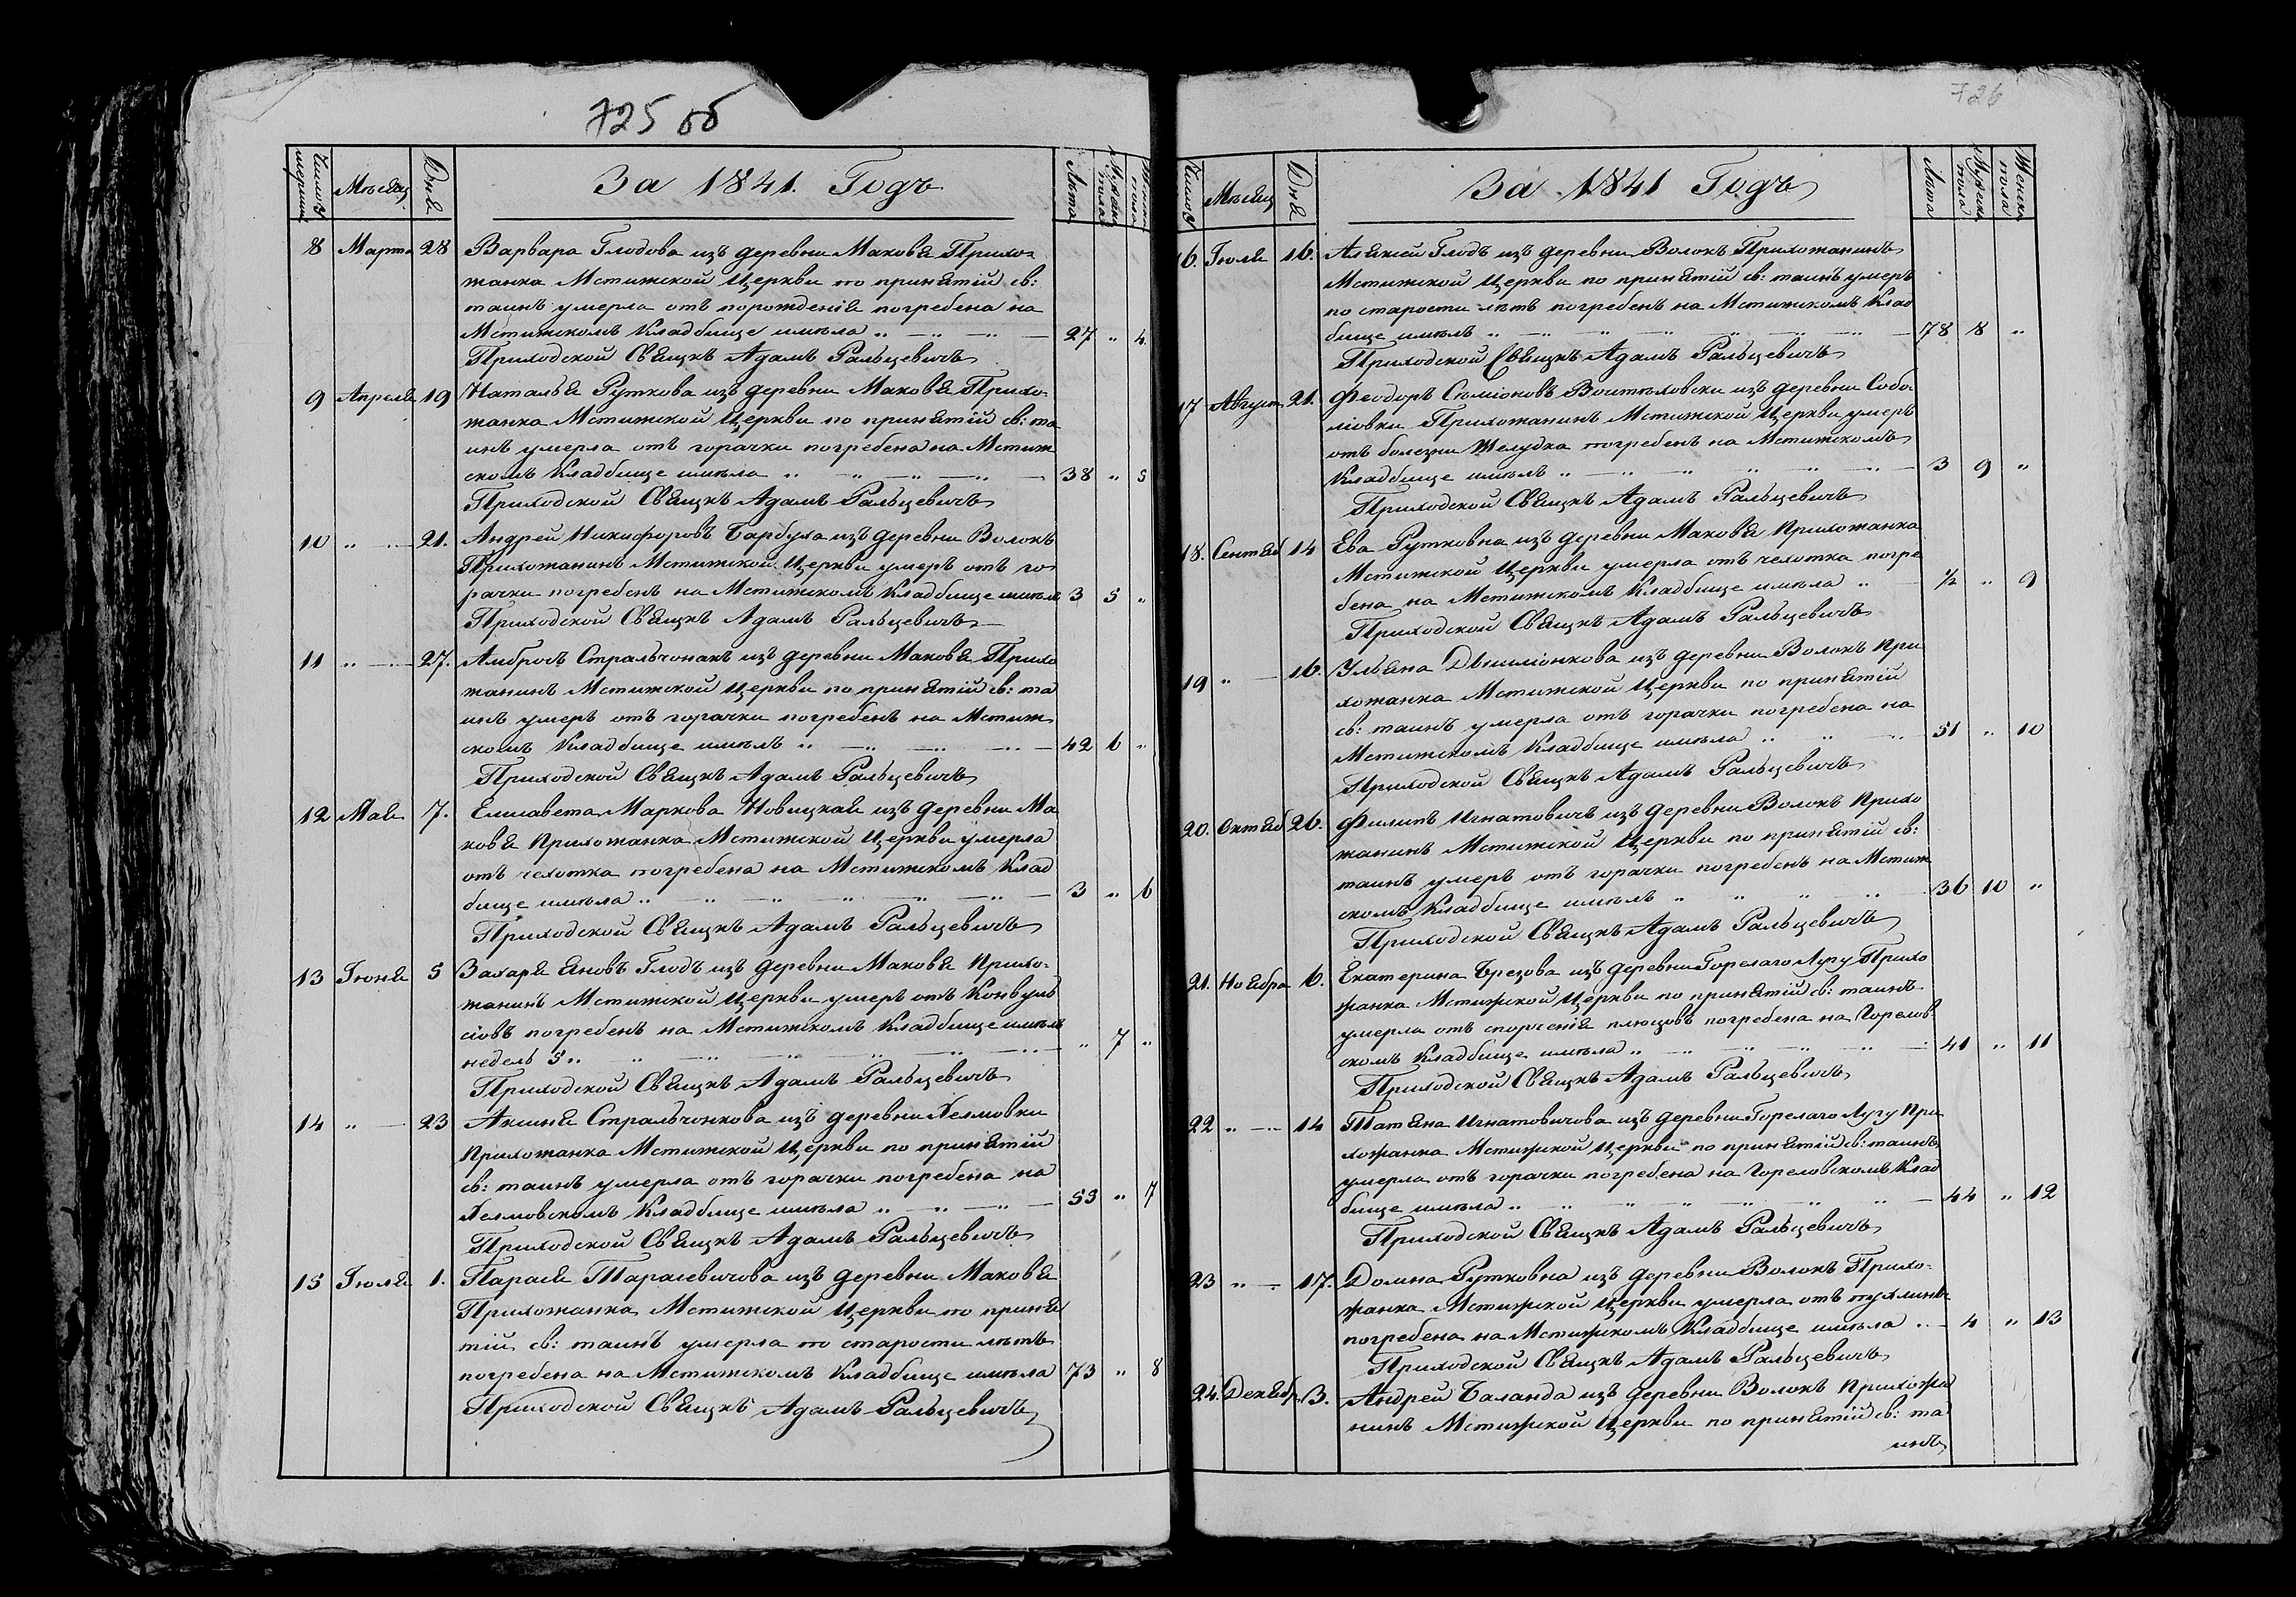 725 об
Число умершихъ Мѣсяц. Дня За 1841. Годъ Лѣта Мужска пола Женска пола
8 Марта 28 Варвара Глодова изъ деревни Маковя Прихо-
жанка Мстижской Церкви по принятій св:
таинъ умерла отъ порожденія погребена на
Мстижскомъ Кладбище имѣла 27 „ 4.
Приходской Свящкъ Адамъ Ральцевичъ
9 Апреля 19 Наталья Руткова изъ деревни Маковя Прихо-
жанка Мстижской Церкви по принятій св: та
инъ умерла отъ горачки погребена на Мстиж
скомъ Кладбище имѣла 38 „ 5
Приходской Свящкъ Адамъ Ральцевичъ
10 „ 21. Андрей Никифоровъ Барбула изъ деревни Волокъ
Прихожанинъ Мстижской Церкви умеръ отъ го
рачки погребенъ на Мстижскомъ Кладбище имѣлъ 3 5 „
Приходской Свящкъ Адамъ Ральцевичъ
11 „ 27. Амбросъ Стральчонакъ изъ деревни Маковя Прихо
жанинъ Мстижской Церкви по принятій св: та
инъ умеръ отъ горачки погребенъ на Мстиж
скомъ Кладбище имѣлъ 42 6 „
Приходской Свящкъ Адамъ Ральцевичъ
12 Мая 7. Елисавета Маркова Новицкая изъ деревни Ма
ковя Прихожанка Мстижской Церкви умерла
отъ чехотка погребена на Мстижскомъ Клад
бище имѣла 3 „ 6
Приходской Свящкъ Адамъ Ральцевичъ
13 Іюня 5 Захаря Яновъ Глодъ изъ деревни Маковя Прихо-
жанинъ Мстижской Церкви умеръ отъ Конвуль
сіовъ погребенъ на Мстижскомъ Кладбище имѣлъ
недель 5 „ 7 „
Приходской Свящкъ Адамъ Ральцевичъ
14 „ 23 Аксиня Стральчонкова изъ деревни Хелмовки
Прихожанка Мстижской Церкви по принятій
св: таинъ умерла отъ горачки погребена на
Хелмовскомъ Кладбище имѣла 53 „ 7
Приходской Свящкъ Адамъ Ральцевичъ
15 Іюля 1. Парася Тарасевичова изъ деревни Маковя
Прихожанка Мстижской Церкви по приня
тій св: таинъ умерла по старости лѣтъ
погребена на Мстижскомъ Кладбище имѣла 73 „ 8
Приходской Свящкъ Адамъ Ральцевичъ
726
Число Мѣсяц Дня За 1841 Годъ Лѣта Мужска пола Женска пола
16. Іюля 16. Алѣксей Глодъ изъ деревни Волокъ Прихожанинъ
Мстижской Церкви по принятій св: таинъ умеръ
по старости лѣтъ погребенъ на Мстижскомъ Клад
бище имѣлъ 78 8 „
Приходской Свящкъ Адамъ Ральцевичъ
17 Август 21. Феодоръ Сѣміоновъ Воитѣловски изъ деревни Собо-
ліовки Прихожанинъ Мстижской Церкви умеръ
отъ болезни Желудка погребенъ на Мстижскомъ
Кладбище имѣлъ 3 9 „
Приходской Свящкъ Адамъ Ральцевичъ
18. Сентяб 14 Ева Рутковна изъ деревни Маковя Прихожанка
Мстижской Церкви умерла отъ чехотка погре
бена на Мстижскомъ Кладбище имѣла ½ „ 9
Приходской Свящкъ Адамъ Ральцевичъ
19 „ 16. Ульяна изъ деревни Волокъ При
хожанка Мстижской Церкви по принятій
св: таинъ умерла отъ горачки погребена на
Мстижскомъ Кладбище имѣла 51 „ 10
Приходской Свящкъ Адамъ Ральцевичъ
20. Октяб 26. Филипъ Игнатовичъ изъ деревни Волокъ Прихо
жанинъ Мстижской Церкви по принятій св:
таинъ умеръ отъ горачки погребенъ на Мстиж
скомъ Кладбище имѣлъ 36 10 „
Приходской Свящкъ Адамъ Ральцевичъ
21. Ноября 6. Екатерина Брезова изъ деревни Горелаго Лугу Прихо
жанка Мстижской Церкви по принятій св: таинъ
умерла отъ спорченія плюцовъ погребена на Горелов
скомъ Кладбище имѣла 41 „ 11
Приходской Свящкъ Адамъ Ральцевичъ
22 „ 14 Татяна Игнатовичова изъ деревни Горелаго Лугу При
хожанка Мстижской Церкви по принятій св: таинъ
умерла отъ горачки погребена на Гореловскомъ Клад
бище имѣла 44 „ 12
Приходской Свящкъ Адамъ Ральцевичъ
23 „ 17. Домна Рутковна изъ деревни Волокъ Прихо-
жанка Мстижской Церкви умерла отъ пухлины
погребена на Мстижскомъ Кладбище имѣла 4 „ 13
Приходской Свящкъ Адамъ Ральцевичъ
24. Декабр. 3. Андрей Баланда изъ деревни Волокъ Прихожа
нинъ Мстижской Церкви по принятій св: та
инъ